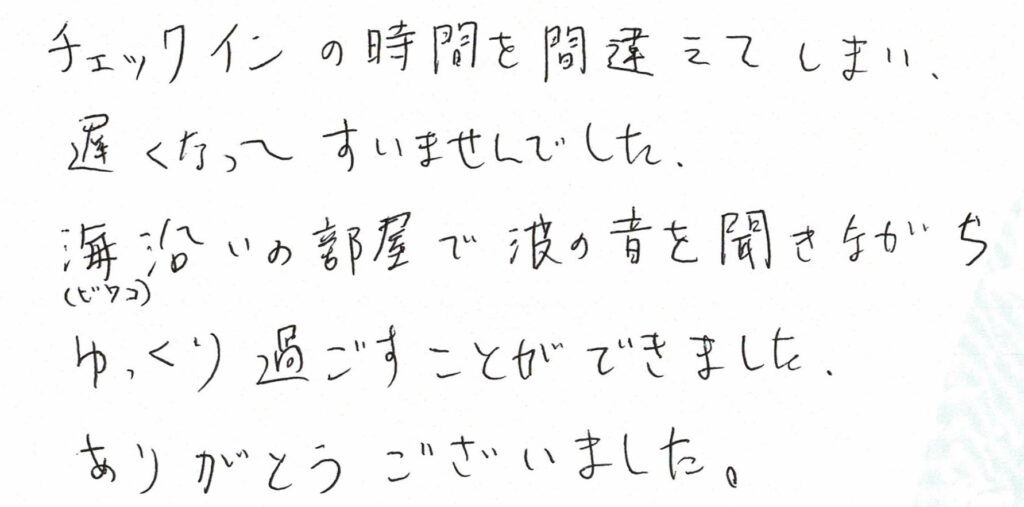 チェックインの時間を間違えてしまい、
遅くなってすいませんでした。
海沿いの部屋で波の音を聞きながら
(ビワコ)
ゆっくり過ごすことができました。
ありがとうございました。